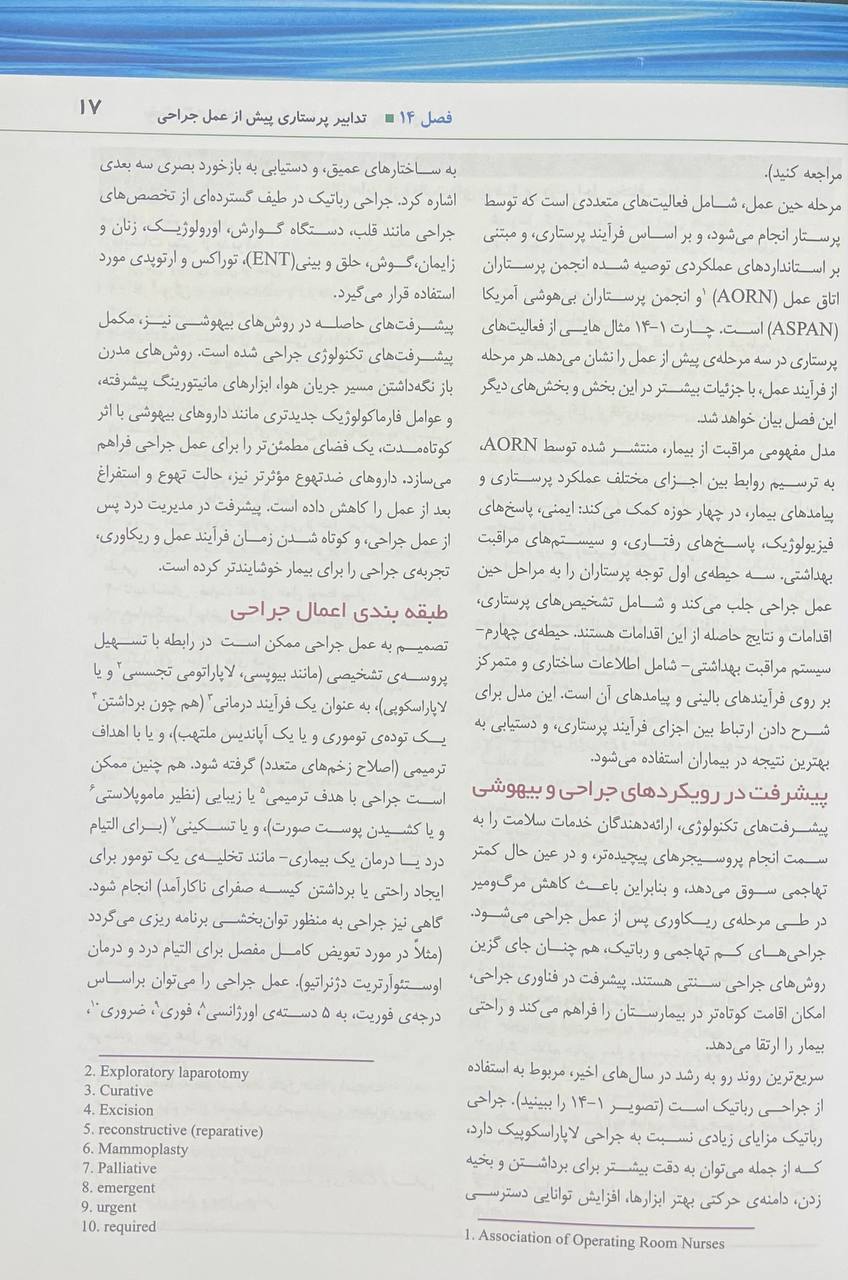 فصل ۱۴ ■ تدابیر پرستاری پیش از عمل جراحی
۱۷
مراجعه کنید).
مرحله حین عمل، شامل فعالیت‌های متعددی است که توسط
پرستار انجام می‌شود، و بر اساس فرآیند پرستاری، و مبتنی
بر استانداردهای عملکردی توصیه شده انجمن پرستاران
اتاق عمل (AORN) ۱و انجمن پرستاران بی‌هوشی آمریکا
(ASPAN) است. چارت ۱-۱۴ مثال هایی از فعالیت‌های
پرستاری در سه مرحله‌ی پیش از عمل را نشان می‌دهد. هر مرحله
از فرآیند عمل، با جزئیات بیشتر در این بخش و بخش‌های دیگر
این فصل بیان خواهد شد.
مدل مفهومی مراقبت از بیمار، منتشر شده توسط AORN،
به ترسیم روابط بین اجزای مختلف عملکرد پرستاری و
پیامدهای بیمار، در چهار حوزه کمک می‌کند: ایمنی، پاسخ‌های
فیزیولوژیک، پاسخ‌های رفتاری، و سیستم‌های مراقبت
بهداشتی. سه حیطه‌ی اول توجه پرستاران را به مراحل حین
عمل جراحی جلب می‌کند و شامل تشخیص‌های پرستاری،
اقدامات و نتایج حاصله از این اقدامات هستند. حیطه‌ی چهارم-
سیستم مراقبت بهداشتی- شامل اطلاعات ساختاری و متمرکز
بر روی فرآیندهای بالینی و پیامدهای آن است. این مدل برای
شرح دادن ارتباط بین اجزای فرآیند پرستاری، و دستیابی به
بهترین نتیجه در بیماران استفاده می‌شود.
پیشرفت در رویکردهای جراحی و بیهوشی
پیشرفت‌های تکنولوژی، ارائه‌دهندگان خدمات سلامت را به
سمت انجام پروسیجرهای پیچیده‌تر، و در عین حال کمتر
تهاجمی سوق می‌دهد، و بنابراین باعث کاهش مرگ‌ومیر
در طی مرحله‌ی ریکاوری پس از عمل جراحی می‌شود.
جراحی‌های کم تهاجمی و رباتیک، هم چنان جای گزین
روش‌های جراحی سنتی هستند. پیشرفت در فناوری جراحی،
امکان اقامت کوتاه‌تر در بیمارستان را فراهم می‌کند و راحتی
بیمار را ارتقا می‌دهد.
سریع‌ترین روند رو به رشد در سال‌های اخیر، مربوط به استفاده
از جراحی رباتیک است (تصویر ۱-۱۴ را ببینید). جراحی
رباتیک مزایای زیادی نسبت به جراحی لاپاراسکوپیک دارد،
که از جمله می‌توان به دقت بیشتر برای برداشتن و بخیه
زدن، دامنه‌ی حرکتی بهتر ابزارها، افزایش توانایی دسترسی
1. Association of Operating Room Nurses
به ساختارهای عمیق، و دستیابی به بازخورد بصری سه بعدی
اشاره کرد. جراحی رباتیک در طیف گسترده‌ای از تخصص‌های
جراحی مانند قلب، دستگاه گوارش، اورولوژیک، زنان و
زایمان،گوش، حلق و بینی(ENT)، توراکس و ارتوپدی مورد
استفاده قرار می‌گیرد.
پیشرفت‌های حاصله در روش‌های بیهوشی نیز، مکمل
پیشرفت‌های تکنولوژی جراحی شده است. روش‌های مدرن
باز نگه‌داشتن مسیر جریان هوا، ابزارهای مانیتورینگ پیشرفته،
و عوامل فارماکولوژیک جدیدتری مانند داروهای بیهوشی با اثر
کوتاه‌مدت، یک فضای مطمئن‌تر را برای عمل جراحی فراهم
می‌سازد. داروهای ضدتهوع مؤثرتر نیز، حالت تهوع و استفراغ
بعد از عمل را کاهش داده است. پیشرفت در مدیریت درد پس
از عمل جراحی، و کوتاه شدن زمان فرآیند عمل و ریکاوری،
تجربه‌ی جراحی را برای بیمار خوشایندتر کرده است.
طبقه بندی اعمال جراحی
تصمیم به عمل جراحی ممکن است در رابطه با تسهیل
پروسه‌ی تشخیصی (مانند بیوپسی، لاپاراتومی تجسسی۲ و یا
لاپاراسکوپی)، به عنوان یک فرآیند درمانی۳ (هم چون برداشتن۴
یک توده‌ی توموری و یا یک آپاندیس ملتهب)، و یا با اهداف
ترمیمی (اصلاح زخم‌های متعدد) گرفته شود. هم چنین ممکن
است جراحی با هدف ترمیمی۵ یا زیبایی (نظیر ماموپلاستی۶
و یا کشیدن پوست صورت)، و یا تسکینی۷ (برای التیام
درد یا درمان یک بیماری- مانند تخلیه‌ی یک تومور برای
ایجاد راحتی یا برداشتن کیسه صفرای ناکارآمد) انجام شود.
گاهی نیز جراحی به منظور توان‌بخشی برنامه ریزی می‌گردد
(مثلاً در مورد تعویض کامل مفصل برای التیام درد و درمان
اوستئوآرتریت دژنراتیو). عمل جراحی را می‌توان براساس
درجه‌ی فوریت، به ۵ دسته‌ی اورژانسی۸، فوری۹، ضروری۱۰،
2. Exploratory laparotomy
3. Curative
4. Excision
5. reconstructive (reparative)
6. Mammoplasty
7. Palliative
8. emergent
9. urgent
10. required